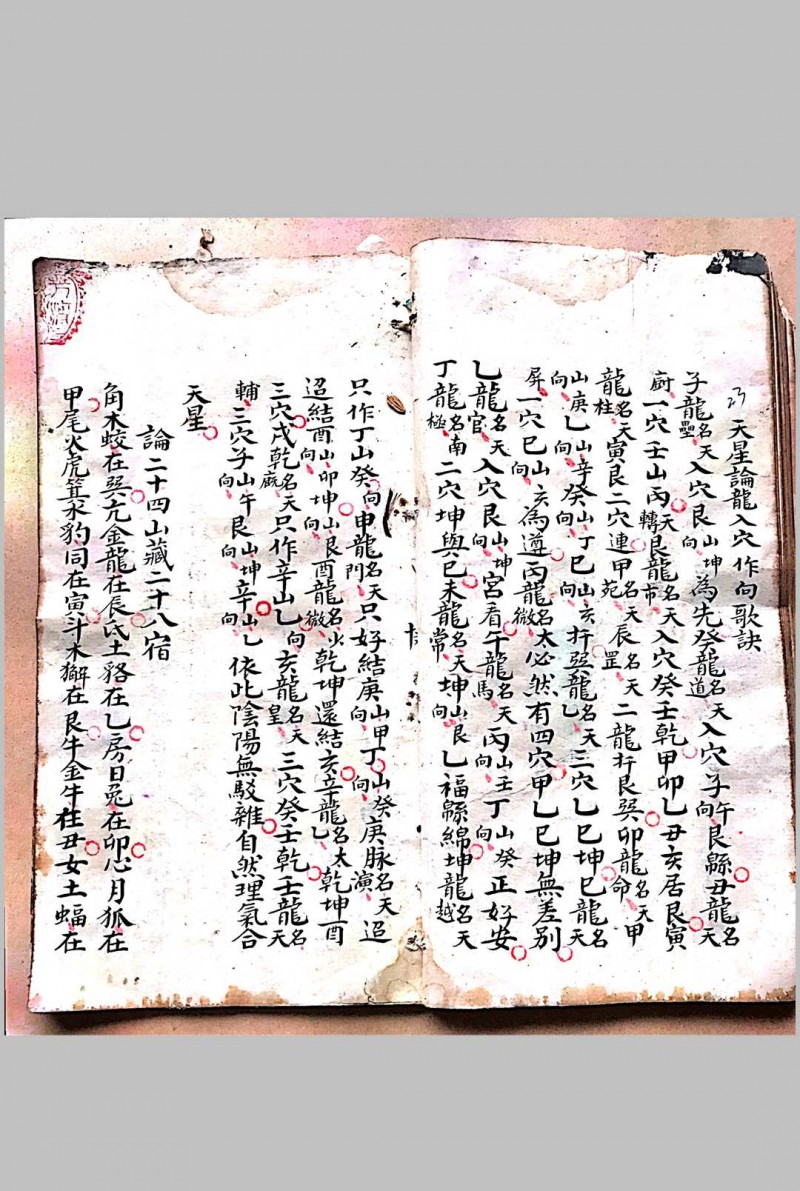 天星論龍入穴作向歌訣
子龍名天壘入穴艮山坤向為先癸龍名天道入穴子午向艮縣丑龍名天
廚一穴壬山丙天轉艮龍名天市入穴癸壬乾甲卯乙丑亥居艮寅
龍名天柱寅艮二穴連甲名天苑辰名天罡二龍扦艮巽卯龍名天命甲
山庚向乙山辛向癸山丁向巳山亥向扦巽龍名天乙三穴乙巳坤巳龍名天
屏一穴巳山亥向為遵丙龍名太微必然有四穴甲乙巳坤無差別
乙龍名天官入穴艮山坤向宮看午龍名天馬丙山壬向丁山癸向正好安
丁龍名南極二穴坤與巳未龍名天常坤山艮向乙福縣綿坤龍名天越
只作丁山癸向申龍名天門只好結庚山甲向丁山癸向庚脉名天演迢
迢結酉山卯向坤山艮向酉龍名少微乾坤還結亥辛龍名太乙乾坤酉
三穴戌乾名天廐只作辛山乙向亥龍名天皇三穴癸壬乾壬龍名天
輔三穴子山午向艮山坤向辛山乙向依此陰陽無駁雜自然理氣合
天星
論二十四山藏二十八宿
角木蛟在巽亢金龍在辰氐土貉在乙房日兎在卯心月狐在
甲尾火虎箕水豹同在寅斗木獬在艮牛金牛在丑女土蝠在